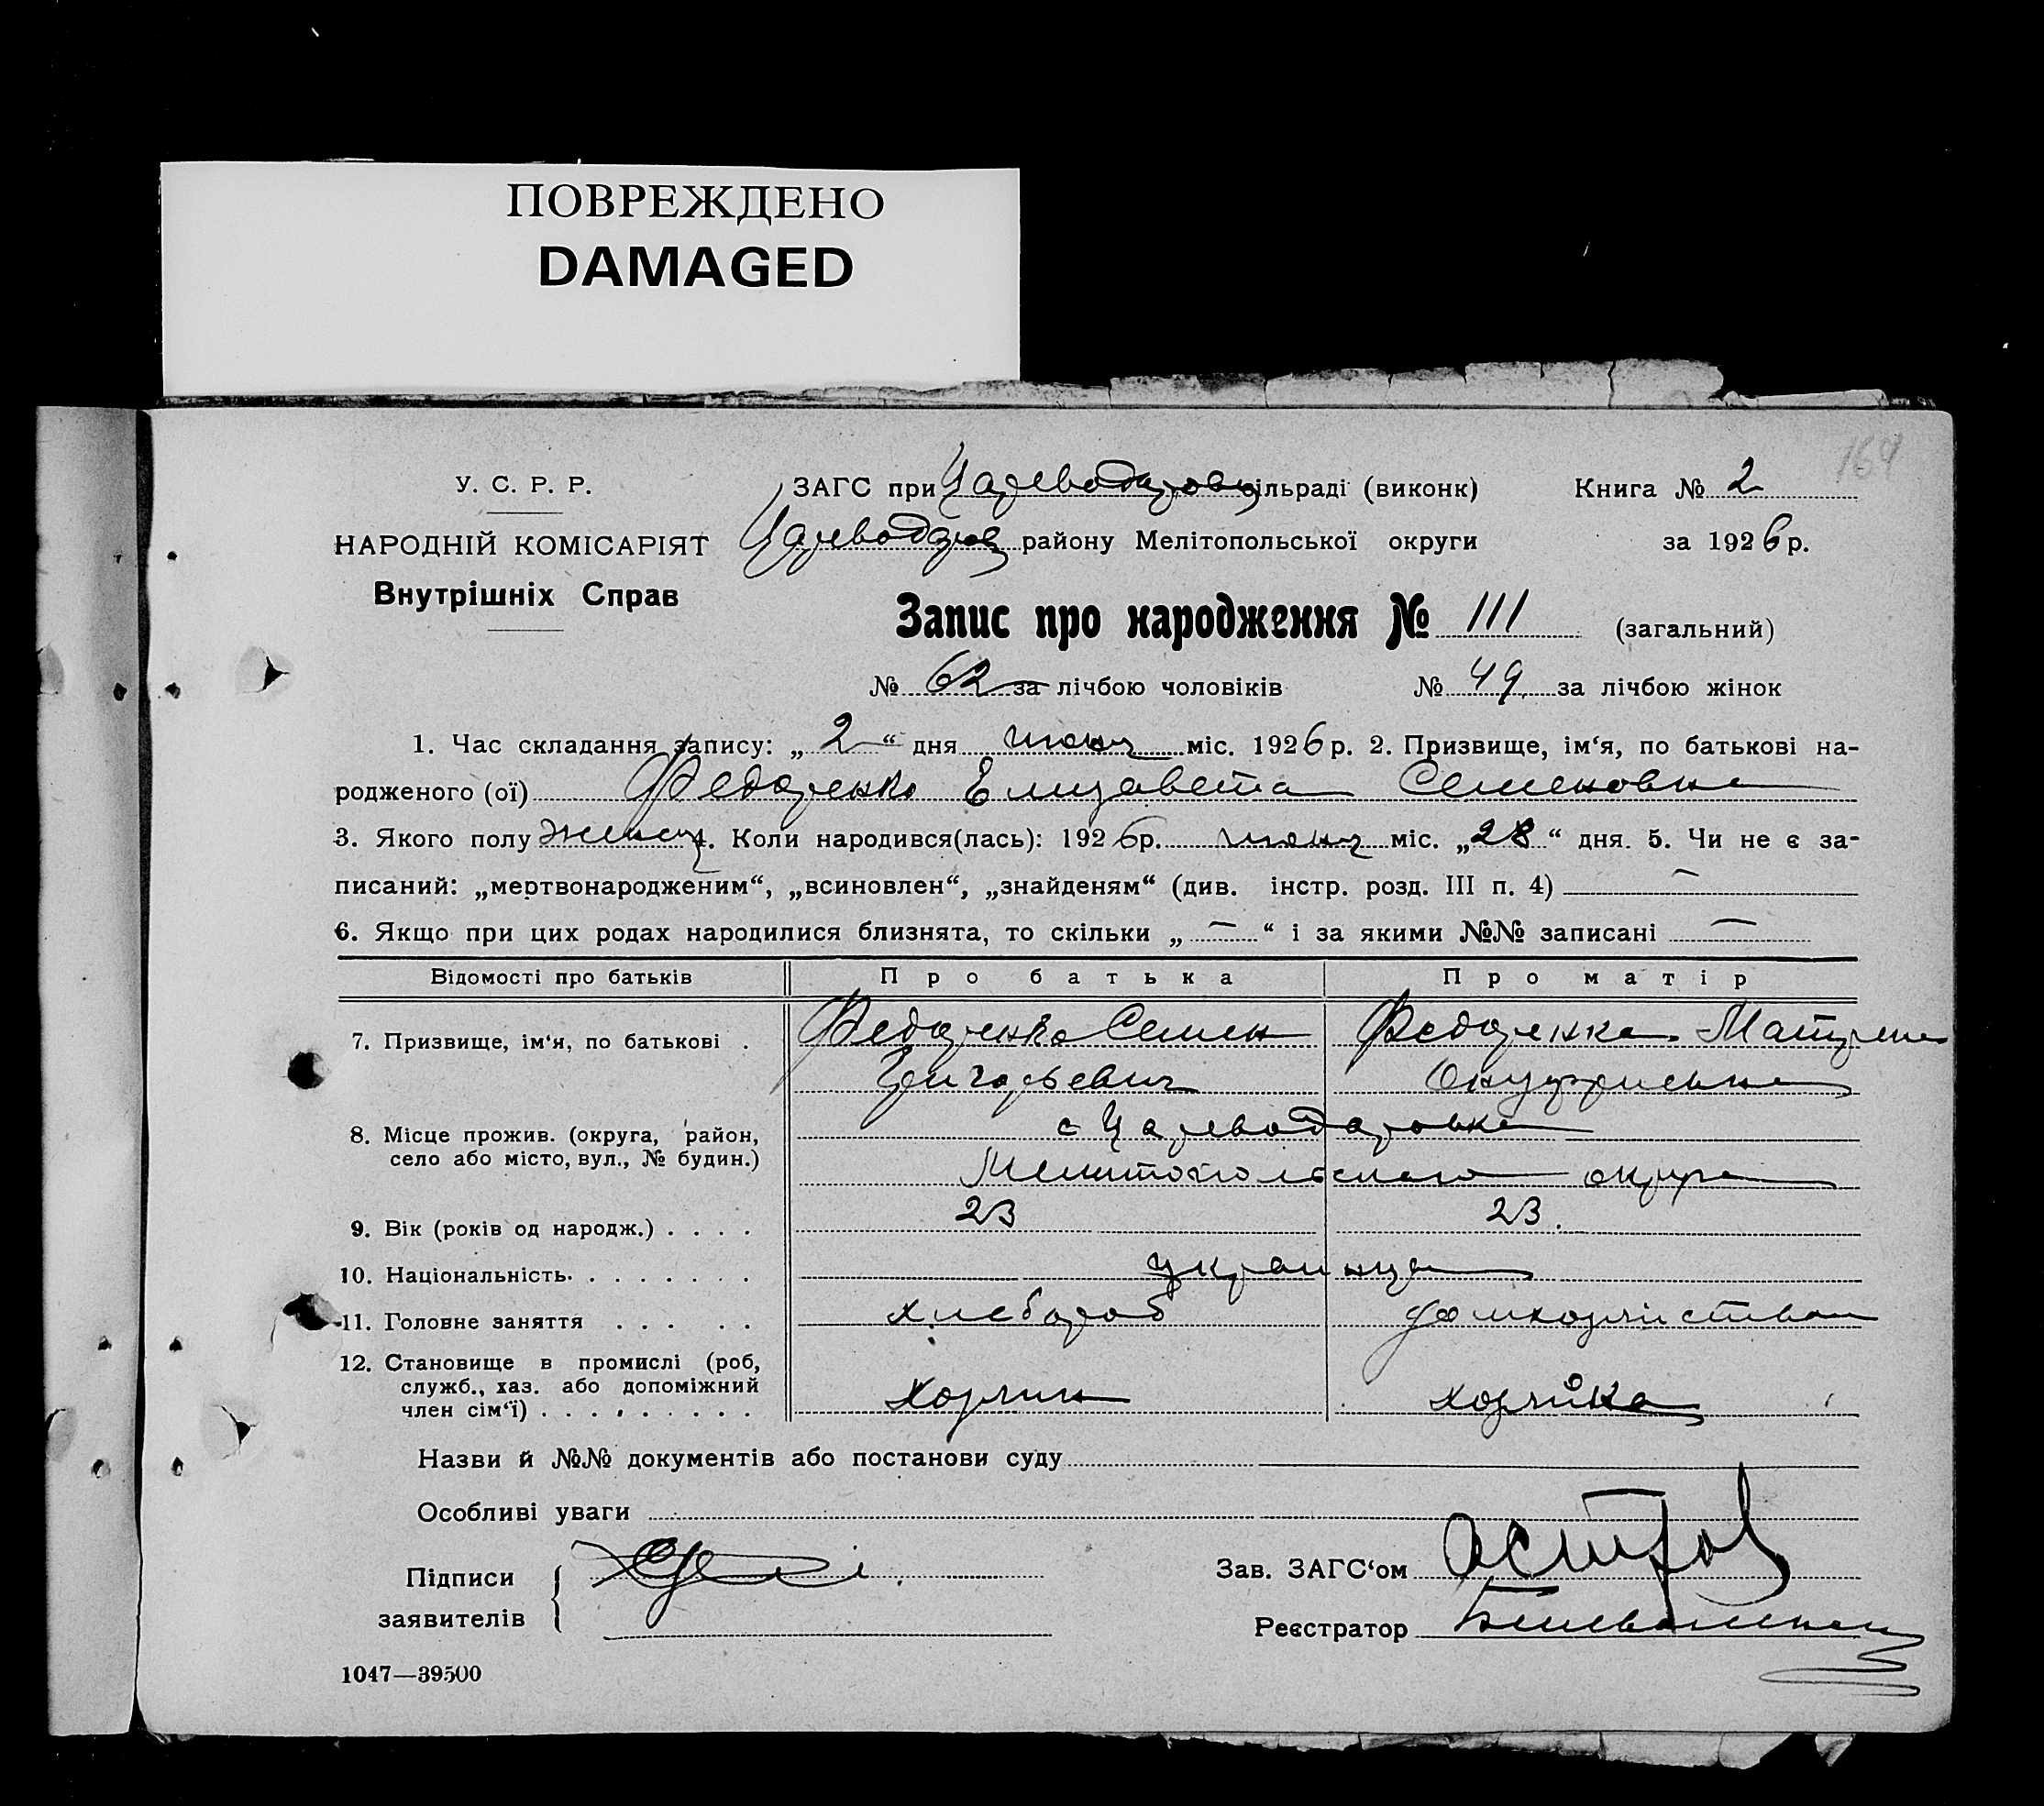 ПОВРЕЖДЕНО
DAMAGED
164
У. С. Р. Р.
НАРОДНІЙ КОМІСАРІЯТ
Внутрішніх Справ
ЗАГС при Царевода­ров сільраді (виконк) Книга № 2
Цареводаров району Мелітопольської округи за 1926 р.
Запис про народження № 111 (загальний)
№ 62 за лічбою чоловіків № 49 за лічбою жінок
1. Час складання запису: „2“ дня міс. 1926 р. 2. Призвище, ім‘я, по батькові на-
родженого (ої) Федоренко Елизавета Семеновна
3. Якого полу женск 4. Коли народився(лась): 1926 р. міс. „28“ дня. 5. Чи не є за-
писаний: „мертвонародженим“, „всиновлен“, „знайденям“ (див. інстр. розд. III п. 4) —
6. Якщо при цих родах народилися близнята, то скільки „—“ і за якими №№ записані —
Відомості про батьків Про батька Про матір
7. Призвище, ім‘я, по батькові . Федоренко Семен Федоренко Матрена
Григорьевич Онуфриевна
8. Місце прожив. (округа, район, с Цареводаровка
село або місто, вул., № будин.) Мелитопольского округа
9. Вік (років од народж.) . . . . 23 23.
10. Національність. . . . . . . . украинцы
11. Головне заняття . . . . . хлебороб
12. Становище в промислі (роб,
служб., хаз. або допоміжний
член сім‘ї) . . . . . . . . . Хозяин хозяйка
Назви й №№ документів або постанови суду
Особливі уваги
Підписи
заявителів
Зав. ЗАГС‘ом Остров
Реєстратор
1047—39500